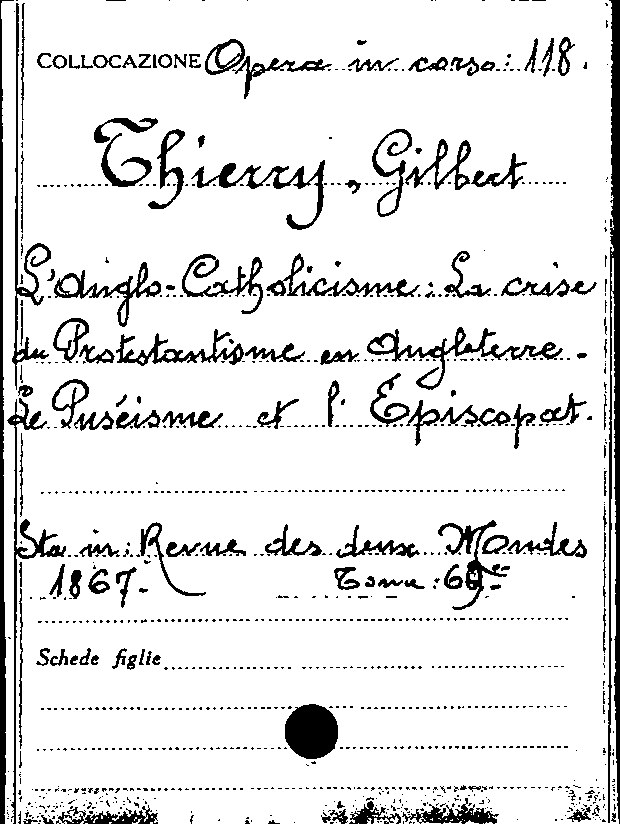 COLLOCAZIONE Opera in corso: 118.
Thierry, Gilbert
L'Anglo-Catholicisme: La crise
du Protestantisme en Angleterre -
Le Puséisme et l'Épiscopat.
Sta in: Revue des deux Mondes
1867. - Tome:
Schede figlie